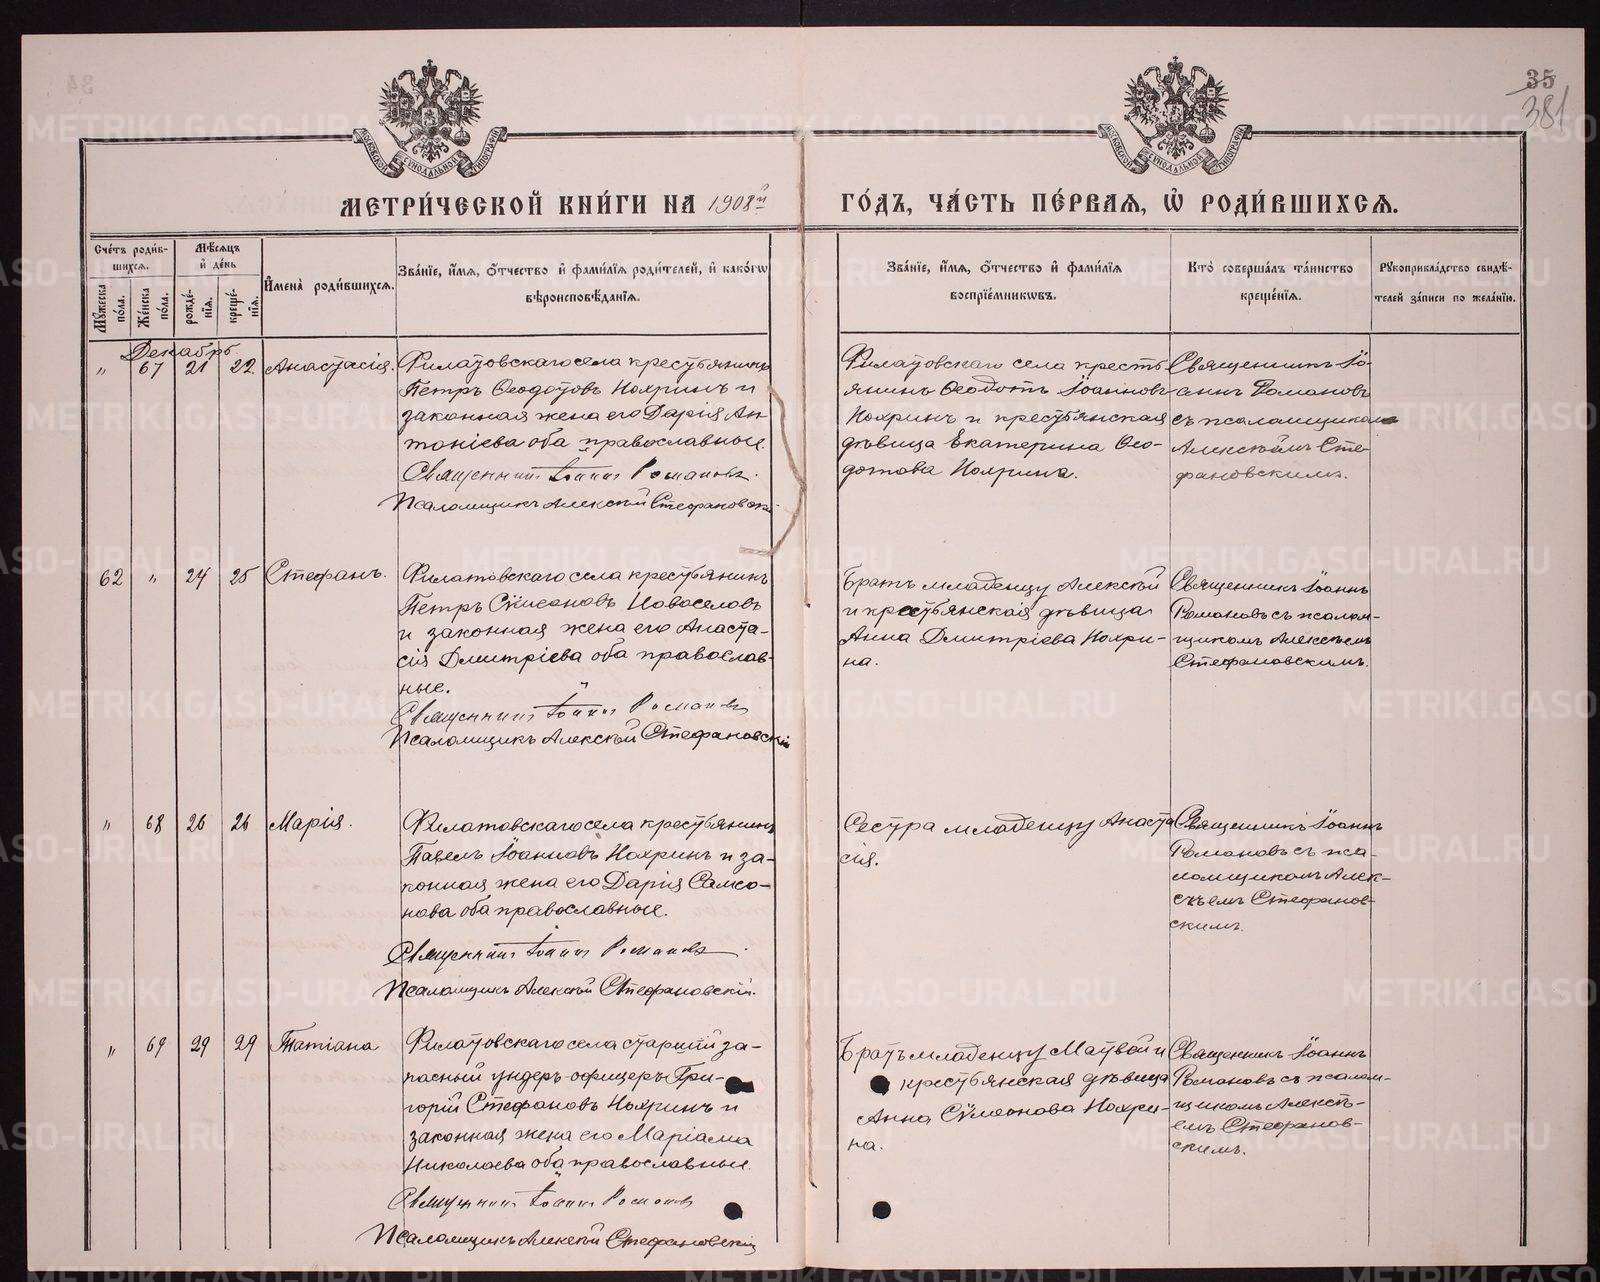 35
381
МЕТРИ́ЧЕСКОЙ КНИ́ГИ НА 1908й ГО́ДЪ, ЧА́СТЬ ПЕ́РВАЯ, Ѡ РОДИ́ВШИХСЯ.
Сче́тъ роди́в-
шихся.
Мꙋ́жеска по́ла.
Же́нска по́ла.
Мѣ́сяцъ
и́ де́нь
рожде́-
нїя.
креще́-
нїя.
И́мена̀ роди́вшихся.
Зва́нїе, и́мя, ѻ́тчество и́ фами́лїя роди́телей, и́ како́гѡ
вѣроисповѣ́данїя.
Зва́нїе, и́мя, ѻ́тчество и́ фами́лїя
воспрїе́мникѡвъ.
Кто̀ соверша́лъ та́инство
креще́нїя.
Рꙋкоприкла́дство свидѣ́-
телей за́писи по жела́нїю.
Декабрь
" 67 21 22 Анастасія.
Филатовскаго села крестьянинъ
Петръ Ѳеодотовъ Нохринъ и
законная жена его Дарія Ан-
тоніева оба православные.
Священникъ Іоаннъ Романовъ.
Псаломщикъ Алексѣй Стефановскій
Филатовскаго села кресть-
янинъ Ѳеодотъ Іоанновъ
Нохринъ и крестьянская
дѣвица Екатерина Ѳео-
дотова Нохрина.
Священникъ Іо-
аннъ Романовъ
съ псаломщикомъ
Алексѣемъ Сте-
фановскимъ.
62 " 24 25 Стефанъ.
Филатовскаго села крестьянинъ
Петръ Сѵмеоновъ Новоселовъ
и законная жена его Анаста-
сія Дмитріева оба православ-
ные.
Священникъ Іоаннъ Романовъ
Псаломщикъ Алексѣй Стефановскій
Братъ младенцу Алексѣй
и крестьянская дѣвица
Анна Дмитріева Нохри-
на.
Священникъ Іоаннъ
Романовъ съ псалом-
щикомъ Алексѣемъ
Стефановскимъ.
" 68 26 26 Марія.
Филатовскаго села крестьянинъ
Павелъ Іоанновъ Нохринъ и за-
конная жена его Дарія Самсо-
нова оба православные.
Священникъ Іоаннъ Романовъ.
Псаломщикъ Алексѣй Стефановскій.
Сестра младенцу Анаста
сія.
Священникъ Іоаннъ
Романовъ съ пса-
ломщикомъ Алек-
сѣемъ Стефанов-
скимъ.
" 69 29 29 Татіана
Филатовскаго села старшій за-
пасный ундеръ-офицеръ Гри-
горій Стефановъ Нохринъ и
законная жена его Маріама
Николаева оба православные.
Священникъ Іоаннъ Романовъ
Псаломщикъ Алексѣй Стефановскій
Братъ младенцу Матвѣй и
крестьянская дѣвица
Анна Сѵмеонова Нохри-
на.
Священникъ Іоаннъ
Романовъ съ псалом-
щикомъ Алексѣ-
емъ Стефанов-
скимъ.